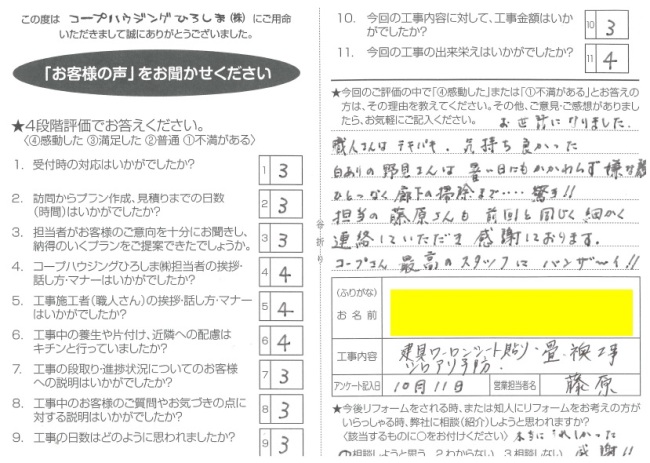 この度は コープハウジングひろしま(株) にご用命
いただきまして誠にありがとうございました。
「お客様の声」をお聞かせください
★4段階評価でお答えください。
〈④感動した ③満足した ②普通 ①不満がある〉
1. 受付時の対応はいかがでしたか？ 1 3
2. 訪問からプラン作成、見積りまでの日数
(時間)はいかがでしたか？ 2 3
3. 担当者がお客様のご意向を十分にお聞きし、
納得のいくプランをご提案できたでしょうか。 3 3
4. コープハウジングひろしま㈱担当者の挨拶・
話し方・マナーはいかがでしたか？ 4 4
5. 工事施工者(職人さん)の挨拶・話し方・マナー
はいかがでしたか？ 5 4
6. 工事中の養生や片付け、近隣への配慮は
キチンと行っていましたか？ 6 4
7. 工事の段取り・進捗状況についてのお客様
への説明はいかがでしたか？ 7 3
8. 工事中のお客様のご質問やお気づきの点に
対する説明はいかがでしたか？ 8 3
9. 工事の日数はどのように思われましたか？ 9 3
谷折り
10. 今回の工事内容に対して、工事金額はいか
がでしたか？ 10 3
11. 今回の工事の出来栄えはいかがでしたか？ 11 4
★今回のご評価の中で「④感動した」または「①不満がある」とお答えの
方は、その理由を教えてください。その他、ご意見・ご感想がありまし
たら、お気軽にご記入ください。 お世話になりました.
職人さんは テキパキ. 気持ち良かった
白ありの 野見さんは 暑い日にもかかわらず 嫌な顔
ひとつなく 廊下の掃除まで‥‥ 驚き!!
担当の 藤原さんも 前回と同じく 細かく
連絡していただき 感謝しております.
コープさん 最高のスタッフに バンザーイ!!
(ふりがな)
お名前
工事内容 建具ワーロンシート貼り・畳・襖工事
シロアリ予防.
アンケート記入日 10月11日 営業担当者名 藤原
★今後リフォームをされる時、または知人にリフォームをお考えの方が
いらっしゃる時、弊社に相談(紹介)しようと思われますか？
〈該当するものに○をお付けください〉 本当に うれしかった
1 相談しようと思う 2 わからない 3 相談しない 感謝!!